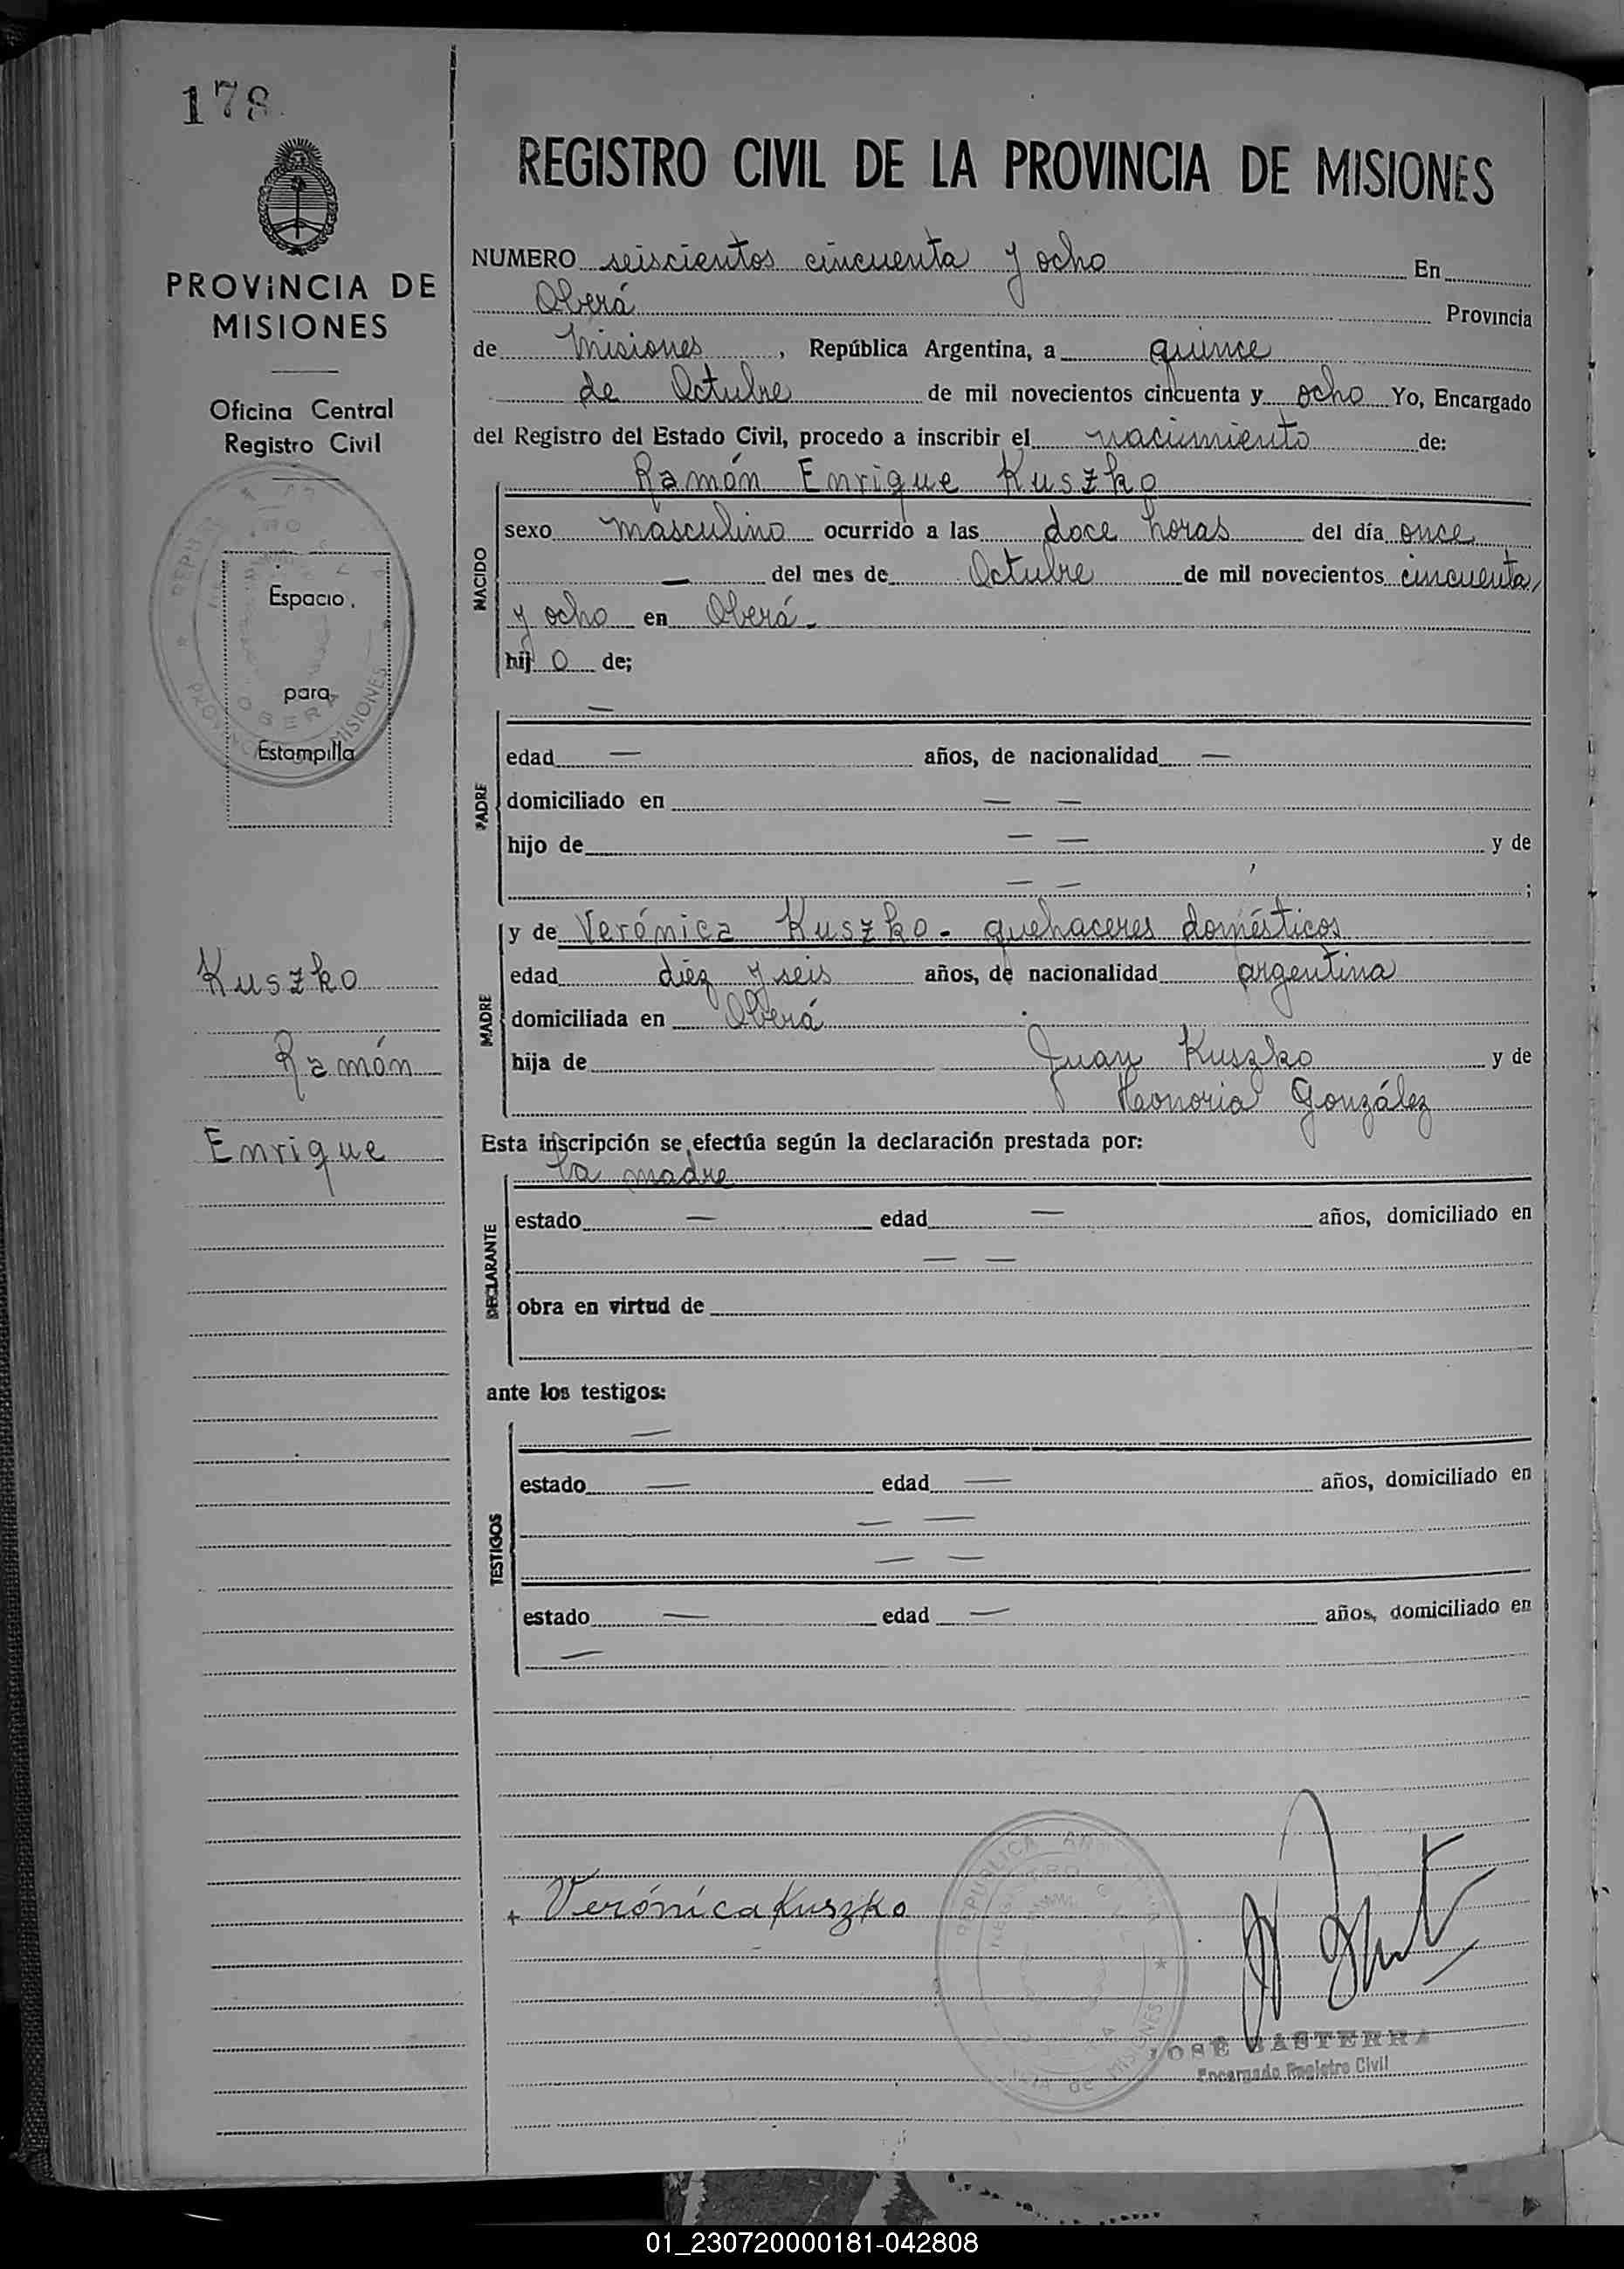 178
PROVINCIA DE
MISIONES
Oficina Central
Registro Civil
Espacio
para
Estampilla
OBERA
Kuszko
Ramón
Enrique
REGISTRO CIVIL DE LA PROVINCIA DE MISIONES
NUMERO seiscientos cincuenta y ocho En
Oberá Provincia
de Misiones, República Argentina, a quince
de Octubre de mil novecientos cincuenta y ocho Yo, Encargado
del Registro del Estado Civil, procedo a inscribir el nacimiento de:
Ramón Enrique Kuszko
NACIDO
sexo masculino ocurrido a las doce horas del día once
— del mes de Octubre de mil novecientos cincuenta
y ocho en Oberá.
hij o de;
—
PADRE
edad — años, de nacionalidad —
domiciliado en — —
hijo de — — y de
— — ;
MADRE
y de Verónica Kuszko - quehaceres domésticos
edad diez y seis años, de nacionalidad argentina
domiciliada en Oberá
hija de Juan Kuszko y de
Honoria González
Esta inscripción se efectúa según la declaración prestada por:
la madre
DECLARANTE
estado — edad — años, domiciliado en
— —
obra en virtud de
ante los testigos:
—
TESTIGOS
estado — edad — años, domiciliado en
— —
— —
estado — edad — años, domiciliado en
—
+ Verónica Kuszko
JOSE BASTERRA
Encargado Registro Civil
01_230720000181-042808